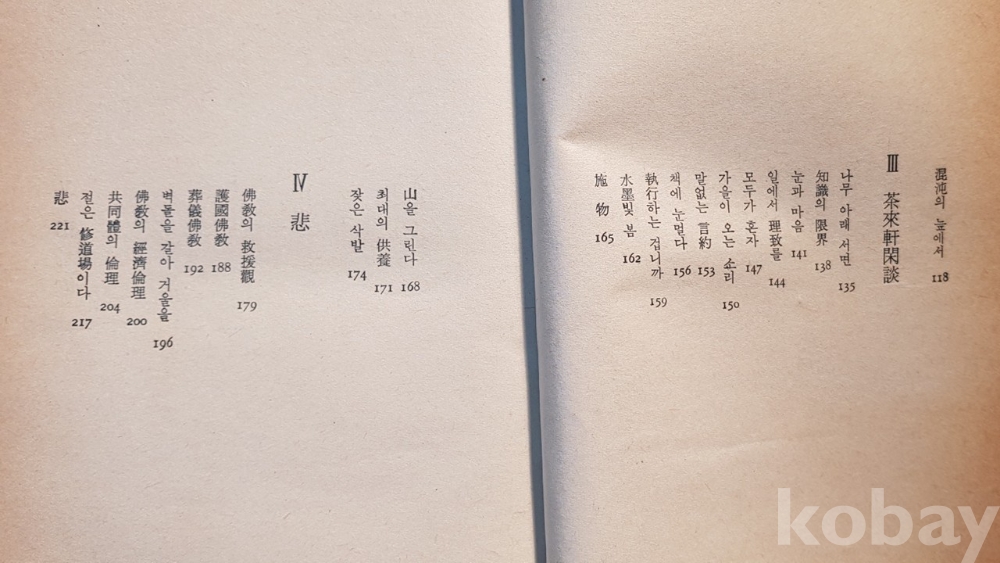 混沌의 늪에서 118
Ⅲ 茶來軒閑談
나무 아래 서면 135
知識의 限界 138
눈과 마음 141
일에서 理致를 144
모두가 혼자 147
가을이 오는 소리 150
말없는 言約 153
책에 눈멀다 156
執行하는 겁니까 159
水墨빛 봄 162
施物 165
山을 그린다 168
최대의 供養 171
잦은 삭발 174
Ⅳ 悲
佛教의 救援觀 179
護國佛教 188
葬儀佛教 192
벽돌을 갈아 거울을 196
佛教의 經濟倫理 200
共同體의 倫理 204
절은 修道場이다 217
悲 221
kobay